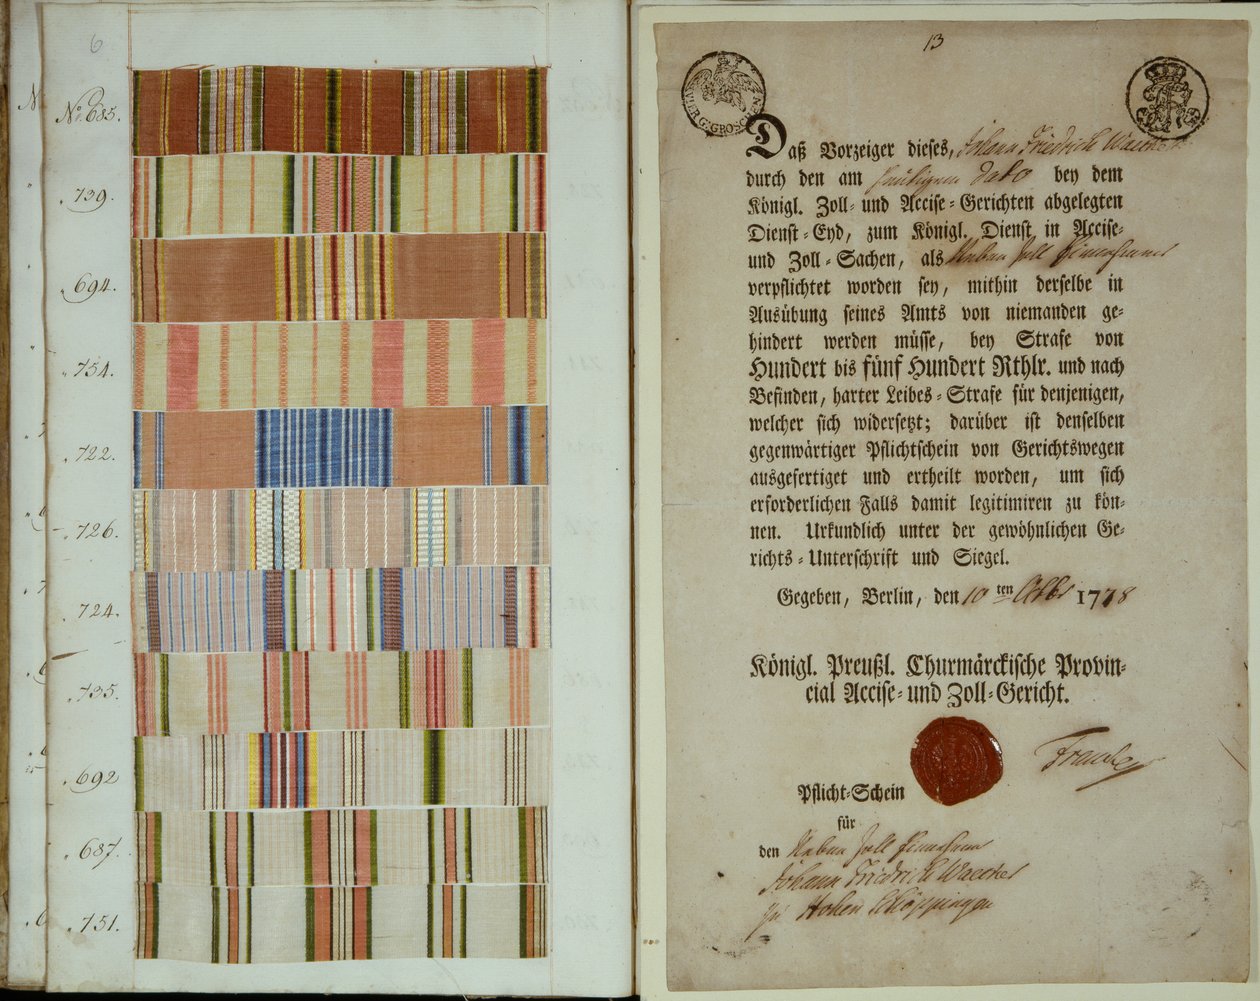 6
No. 685.
739.
694.
754.
722.
726.
724.
735.
692
687.
751.
13
VIER G: GROSCHEN
Daß Vorzeiger dieses, Johann Friedrich
durch den am heutigen dato bey dem
Königl. Zoll- und Accise-Gerichten abgelegten
Dienst-Eyd, zum Königl. Dienst in Accise-
und Zoll-Sachen, als Neben Zoll Einnehmer
verpflichtet worden sey, mithin derselbe in
Ausübung seines Amts von niemanden ge-
hindert werden müsse, bey Strafe von
Hundert bis fünf Hundert Rthlr. und nach
Befinden, harter Leibes-Strafe für denjenigen,
welcher sich widersetzt; darüber ist denselben
gegenwärtiger Pflichtschein von Gerichtswegen
ausgefertiget und ertheilt worden, um sich
erforderlichen Falls damit legitimiren zu kön-
nen. Urkundlich unter der gewöhnlichen Ge-
richts-Unterschrift und Siegel.
Gegeben, Berlin, den 10 ten 1778
Königl. Preußl. Churmärckische Provin-
cial Accise- und Zoll-Gericht.
Pflicht-Schein
für
den Neben Zoll Einnehmer
Johann Friedrich
zu Hohen Schöppingen